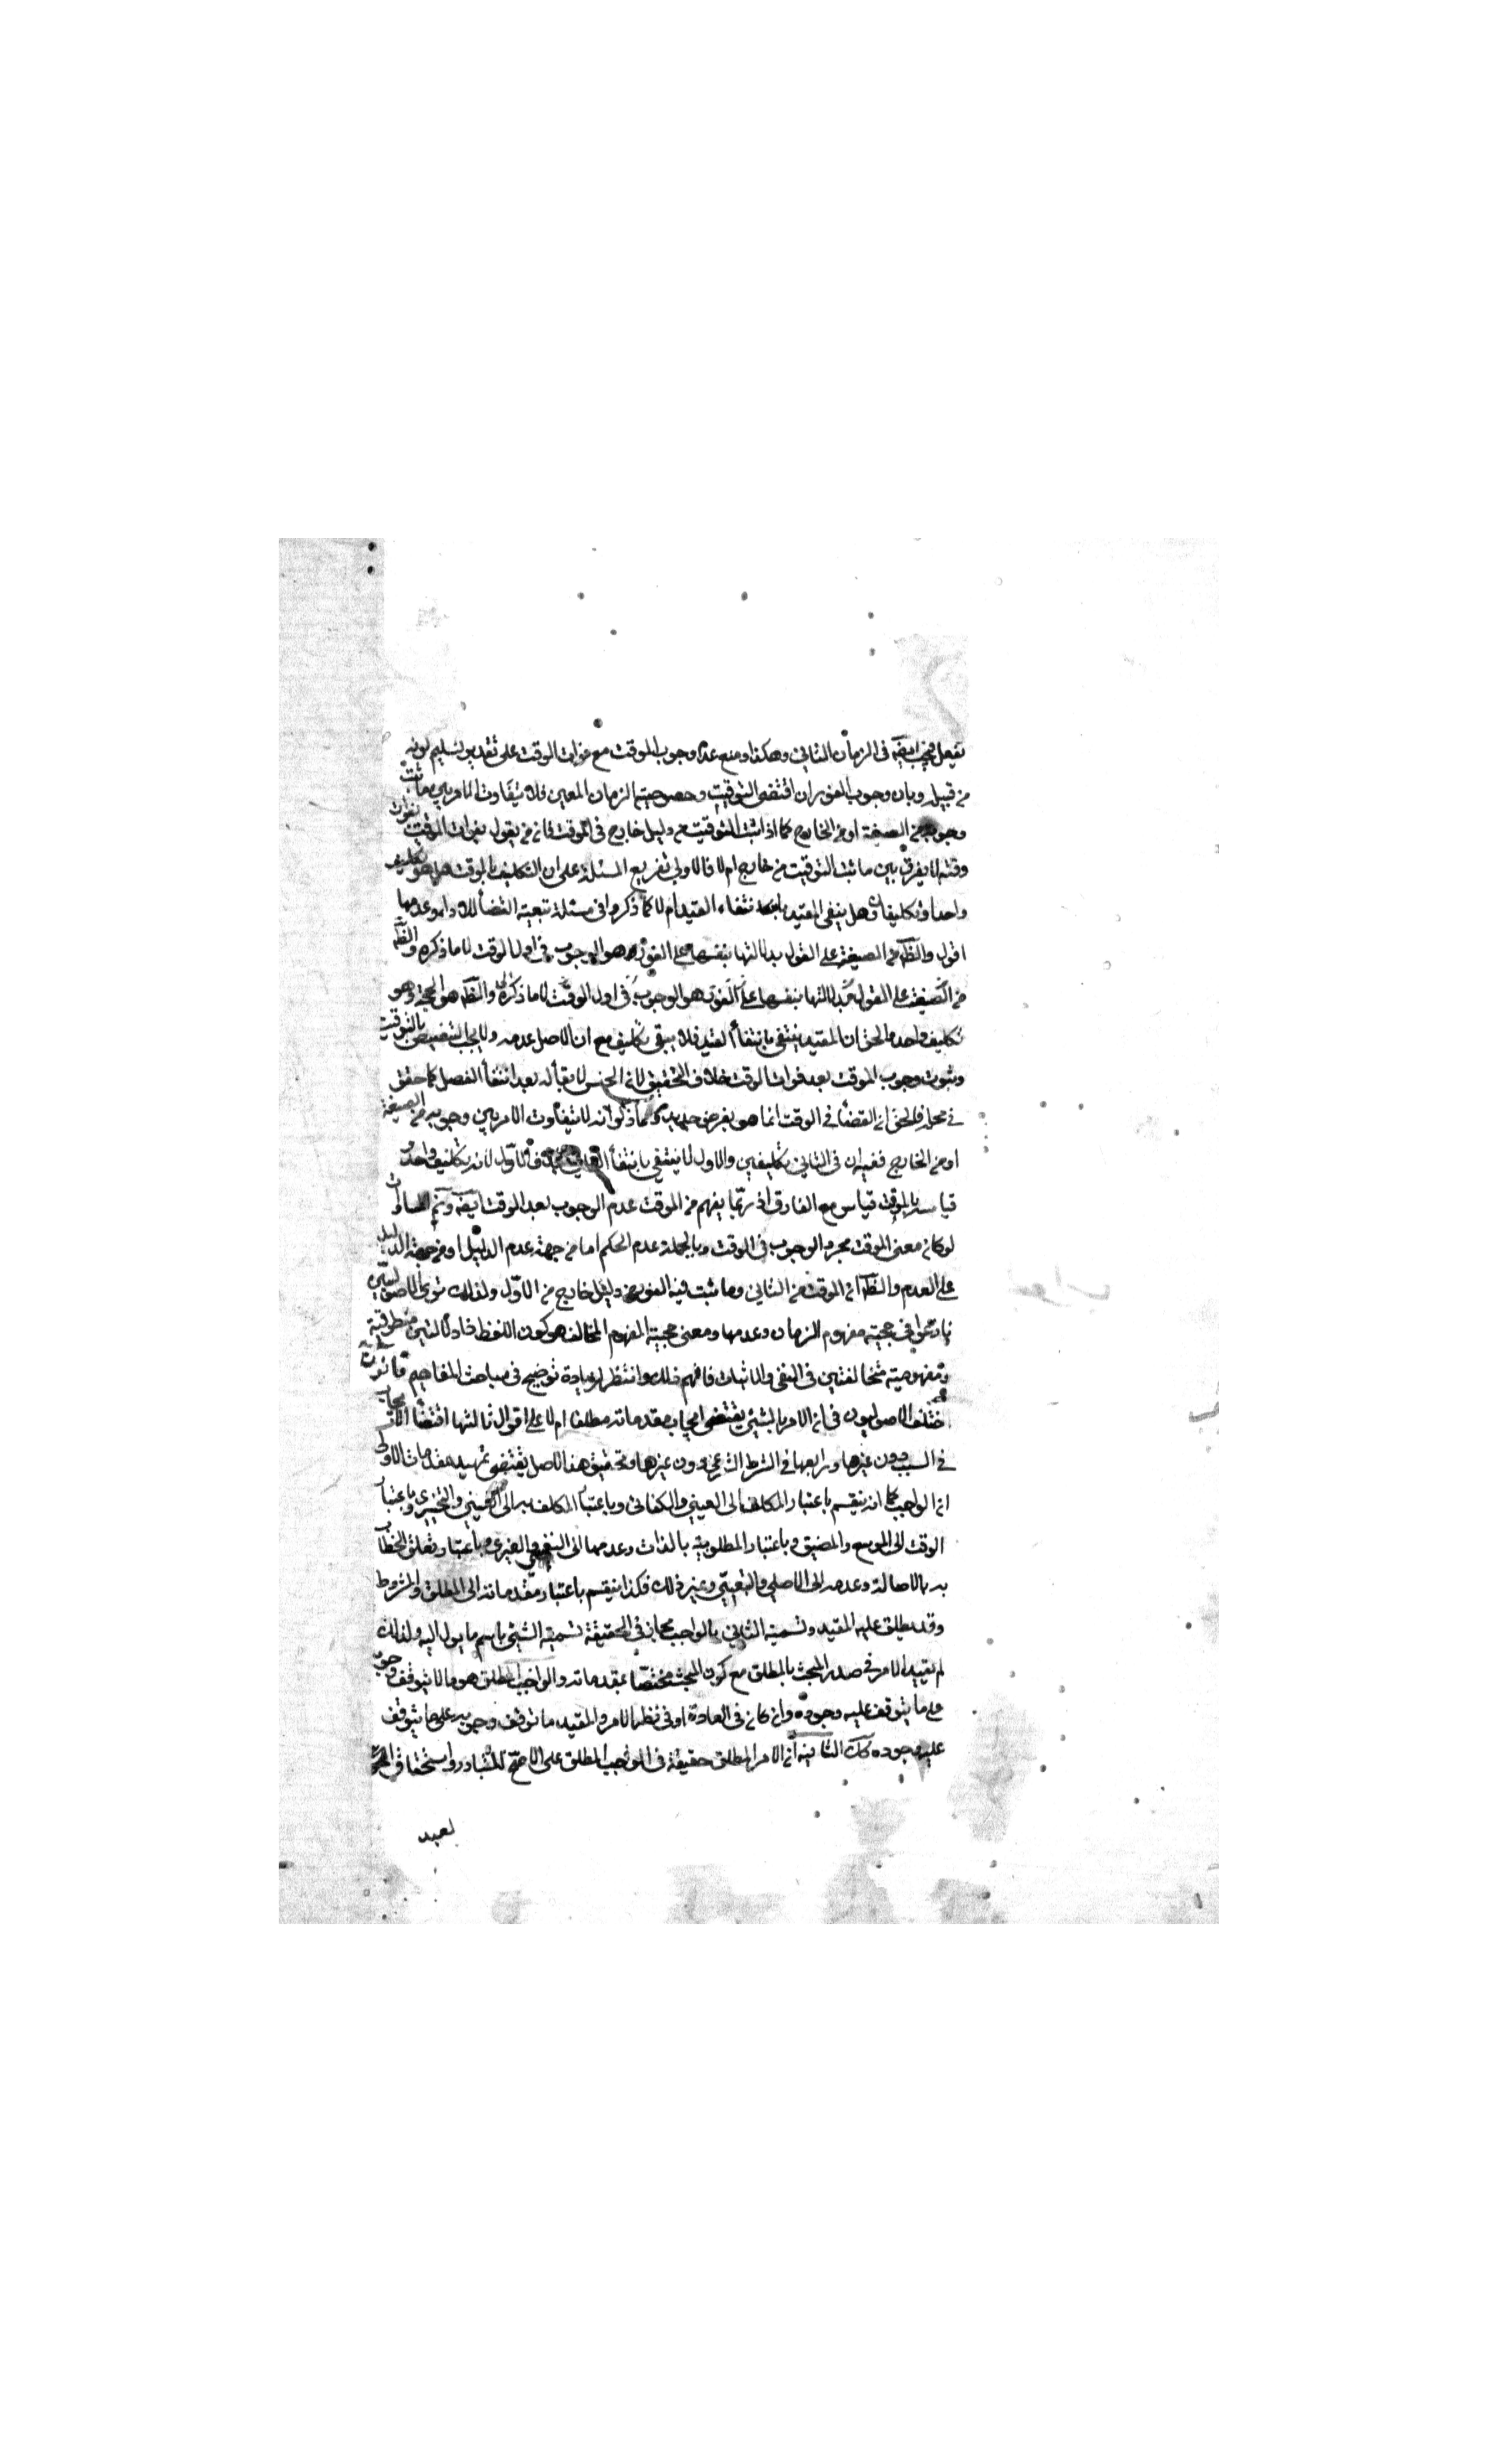 يفعل فيجب ايضه فى الزمان الثانى وهكذا ومنع عدم وجوب الموقت مع فوات الوقت على تقدير تسليم كونه
من قبيله وبان وجوب الفور ان اقتضى التوقيت وخصوصية الزمان المعين فلا يتفاوت الامر بين ما ثبت
وجوبه من الصيغة او من الخارج كما اذا ثبت التوقيت من دليل خارج فى الموقت فانّ من يقول بفوات الموقت بفوات
وقته لا يفرق بين ما ثبت التوقيت من خارج ام لا فالاولى تفريع المسئلة على ان التكليف بالموقت هل هو تكليف
واحد او تكليفان وهل ينفى المقيد بانتفاء القيد ام لا كما ذكروا فى مسئلة تبعية القضأ للاداء وعدمها
اقول والظّه من الصيغة على القول بدلالتها بنفسها على الفور هو الوجوب فى اول الوقت لا ما ذكره والظّه
من الصيغة على القول بدلالتها بنفسها على الفور هو الوجوب فى اول الوقت لا ما ذكره والظّه هو الحجة وهو
تكليف واحد والحق ان المقيد ينتفى بانتفأ القيد فلا يبقى تكليف مع ان الاصل عدمه بالتوقيت
وثبوت وجوب الموقت بعد فوات الوقت خلاف التحقيق لانّ الجنس لا بقأ له بعد انتفأ الفصل كما حقق
فى محله فالحق انّ القضأ فى الوقت انما هو بفرض جديد وما ذكر انه لا يتفاوت الامر بين وجوبه من الصيغة
او من الخارج ففيه ان فى الثانى تكليفين والاول لا ينتفى بانتفأ الثانى بخلاف الاول لانه تكليف واحد و
قياسه بالموقت قياس مع الفارق اذ ربّما يفهم من الموقت عدم الوجوب بعد الوقت ايضه وتمّ المساواة
لو كان معنى الموقت مجرد الوجوب فى الوقت وبالجملة عدم الحكم اما من جهة عدم الدليل او من جهة الدليل
على العدم والظّه انّ الموقت من الثانى وما ثبت فيه الفور من دليل خارج من الاوّل ولذلك ترى الاصوليّين
نازعوا فى حجية مفهوم الزمان وعدمها ومعنى حجية المفهوم المخالف هو كون اللفظ ذا دلالتين منطوقية
ومفهومية متخالفتين فى النفى والاثبات فافهم ذلك وانتظر لزيادة توضيح فى مباحث المفاهيم قانون
اختلف الاصوليون فى انّ الامر بالشئ يقتضى ايجاب مقدماته مطلقا ام لا على اقوال ثالثها اقتضأ الايجاب
فى السبب دون غيرها ورابعها فى الشرط الشرعى دون غيرها وتحقيق هذا الاصل يقتضى تمهيد مقدمات الاولى
انّ الواجب كما انه ينقسم باعتبار المكلف الى العينى والكفائى وباعتبار المكلف به الى العينى والتخييرى وباعتبار
الوقت الى الموسع والمضيق وباعتبار المطلوبية بالذات وعدمها الى النفسى والغيرى وباعتبار تعلق الخطاب
به بالاصالة وعدمه الى الاصلى والتبعىّ وغير ذلك فكذا ينقسم باعتبار مقدماته الى المطلق والمشروط
وقد يطلق عليه المقيد وتسمية الثانى بالواجب مجاز فى الحقيقة تسمية الشئ باسم ما يول اليه ولذلك
لم يقيد الامر فى صدر المبحث بالمطلق مع كون المبحث مختصّا بمقدماته والواجب المطلق هو ما لا يتوقف وجوبه
على ما يتوقف عليه وجوده وان كان فى العادة او فى نظر الامر والمقيد ما توقف وجوبه على ما يتوقف
عليه وجوده كك الثانية انّ الامر المطلق حقيقة فى الواجب المطلق على الاصحّ للتبادر واستحقاق
العبد